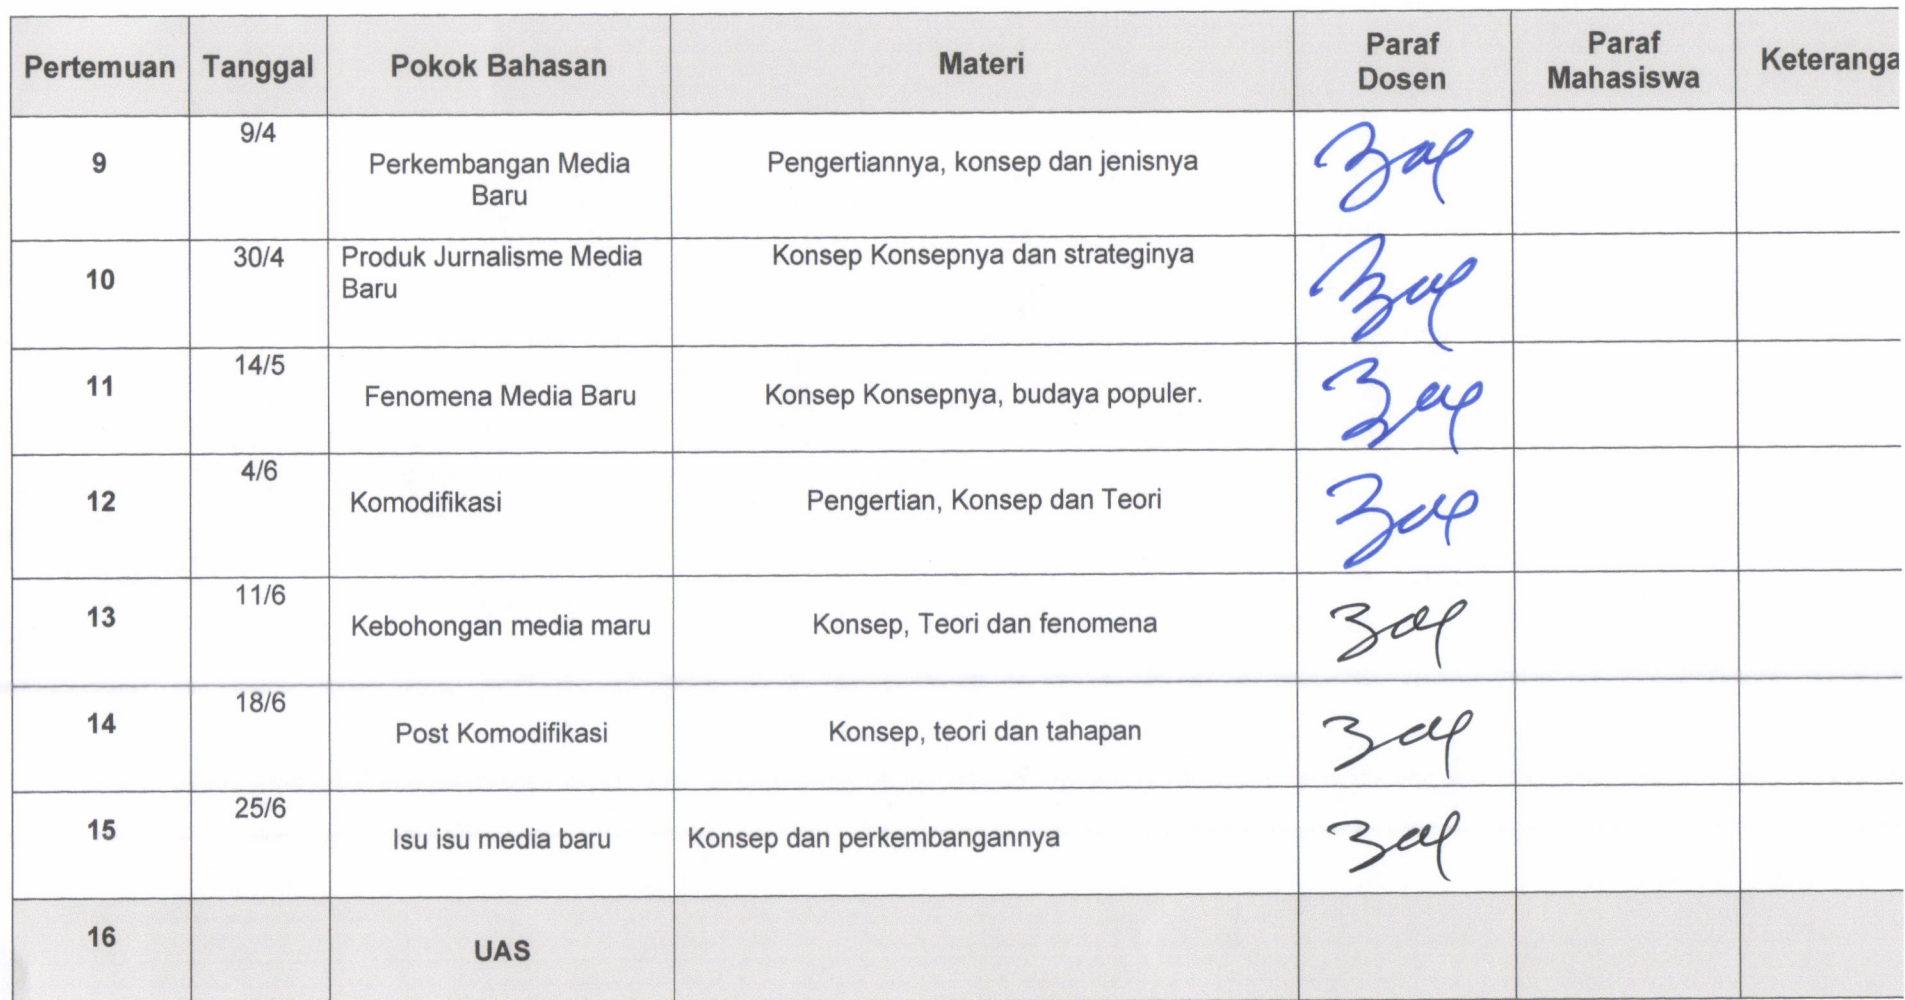 Pertemuan Tanggal Pokok Bahasan Materi Paraf Dosen Paraf Mahasiswa Keteranga
9 9/4 Perkembangan Media Baru Pengertiannya, konsep dan jenisnya
10 30/4 Produk Jurnalisme Media Baru Konsep Konsepnya dan strateginya
11 14/5 Fenomena Media Baru Konsep Konsepnya, budaya populer.
12 4/6 Komodifikasi Pengertian, Konsep dan Teori
13 11/6 Kebohongan media maru Konsep, Teori dan fenomena
14 18/6 Post Komodifikasi Konsep, teori dan tahapan
15 25/6 Isu isu media baru Konsep dan perkembangannya
16 UAS